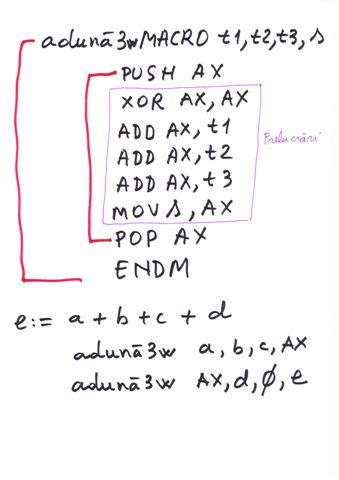 adună3w MACRO t1, t2, t3, s
PUSH AX
XOR AX, AX
ADD AX, t1
ADD AX, t2
ADD AX, t3
MOV s, AX
Prelucrări
POP AX
ENDM
e:= a + b + c + d
adună3w a, b, c, AX
adună3w AX, d, ∅, e